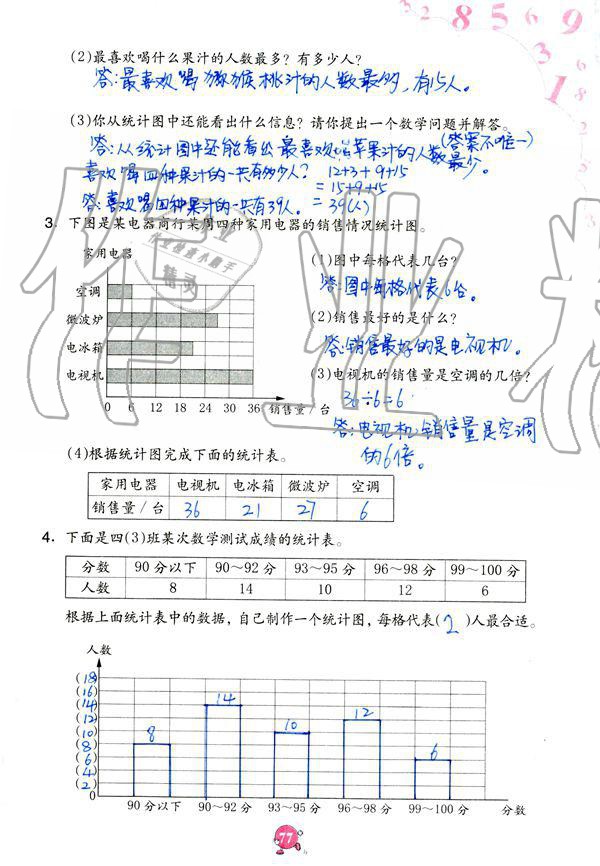 3 2 8 5 6 9
(2)最喜欢喝什么果汁的人数最多? 有多少人?
答:最喜欢喝猕猴桃汁的人数最多,有15人。
(3)你从统计图中还能看出什么信息? 请你提出一个数学问题并解答。
(答案不唯一)
答:从统计图中还能看出最喜欢喝苹果汁的人数最少。
喜欢喝四种果汁的一共有多少人? 12+3+9+15
=15+9+15
答:喜欢喝四种果汁的一共有39人。 =39(人)
3. 下图是某电器商行某周四种家用电器的销售情况统计图。
家用电器
空调
微波炉
电冰箱
电视机
0 6 12 18 24 30 36 销售量/台
(1)图中每格代表几台?
答:图中每格代表6台。
(2)销售最好的是什么?
答:销售最好的是电视机。
(3)电视机的销售量是空调的几倍?
36÷6=6
答:电视机销售量是空调
的6倍。
(4)根据统计图完成下面的统计表。
家用电器 电视机 电冰箱 微波炉 空调
销售量/台 36 21 27 6
4. 下面是四(3)班某次数学测试成绩的统计表。
分数 90分以下 90~92分 93~95分 96~98分 99~100分
人数 8 14 10 12 6
根据上面统计表中的数据,自己制作一个统计图,每格代表(2)人最合适。
人数
(18)
(16)
(14)
(12)
(10)
(8)
(6)
(4)
(2)
8 14 10 12 6
90分以下 90~92分 93~95分 96~98分 99~100分 分数
77